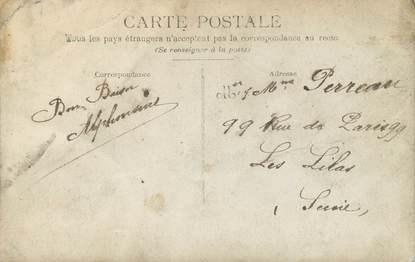 CARTE POSTALE
Tous les pays étrangers n'acceptent pas la correspondance au recto
(Se renseigner à la poste)
Correspondance
Bon Baiser
Alphonsine
Adresse
Mr & Mme Perreau
99 Rue de Paris 99
Les Lilas
Seine